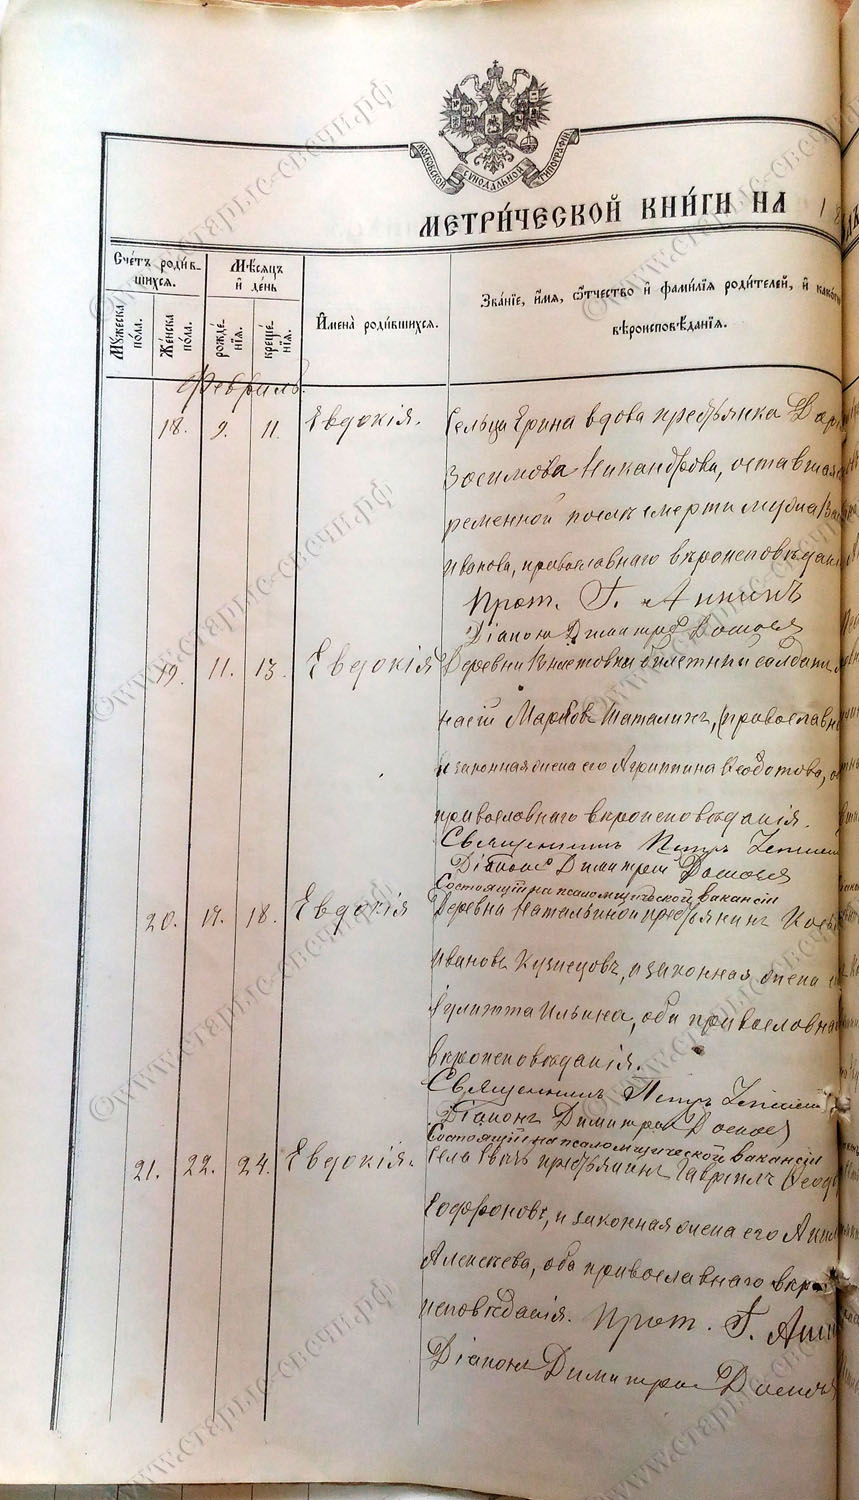 МОСКОВСКОЙ СѴНОДАЛЬНОЙ ТИПОГРАФІИ
МЕТРИ́ЧЕСКОЙ КНИ́ГИ НА 18
Сче́тъ роди́в-
шихся.
Му́жеска по́ла.
Же́нска по́ла.
Мѣ́сяцъ и де́нь
рожде́-
нїя.
креще́-
нїя.
Имена̀ роди́вшихся.
Зва́нїе, и́мя, ѻ́тчество и фами́лїя роди́телей, и како́гѡ
вѣроисповѣ́данїя.
Февраль.
18. 9. 11. Евдокія. Сельца Ерина вдова крестьянка Дар
Зосимова Никандрова, оставшаяся
ременной послѣ смерти мужа
Иванова, православнаго вѣроисповѣдан
Прот. Г. Аннинъ
Діаконъ Димитрій
19. 11. 13. Евдокія Деревни билетный солдатъ
насій Марковъ Шаталинъ, (православн
и законная жена его Агриппина Ѳеодотова,
православнаго вѣроисповѣданія.
Священникъ Петръ
Діаконъ Димитрій
Состоящій на псаломщической вакансіи
20. 17. 18. Евдокія Деревни Натальиной крестьянинъ
Ивановъ Кузнецовъ, и законная жена
Ильина, оба православна
вѣроисповѣданія.
Священникъ Петръ
Діаконъ Димитрій
Состоящій на псаломщической вакансіи
21. 22. 24. Евдокія. Села крестьянинъ Гавріилъ Ѳеод
Софроновъ, и законная жена его Анна
Алексѣева, оба православнаго вѣро
исповѣданія. Прот. Г. Анни
Діаконъ Димитрій
©www.старые-свечи.рф